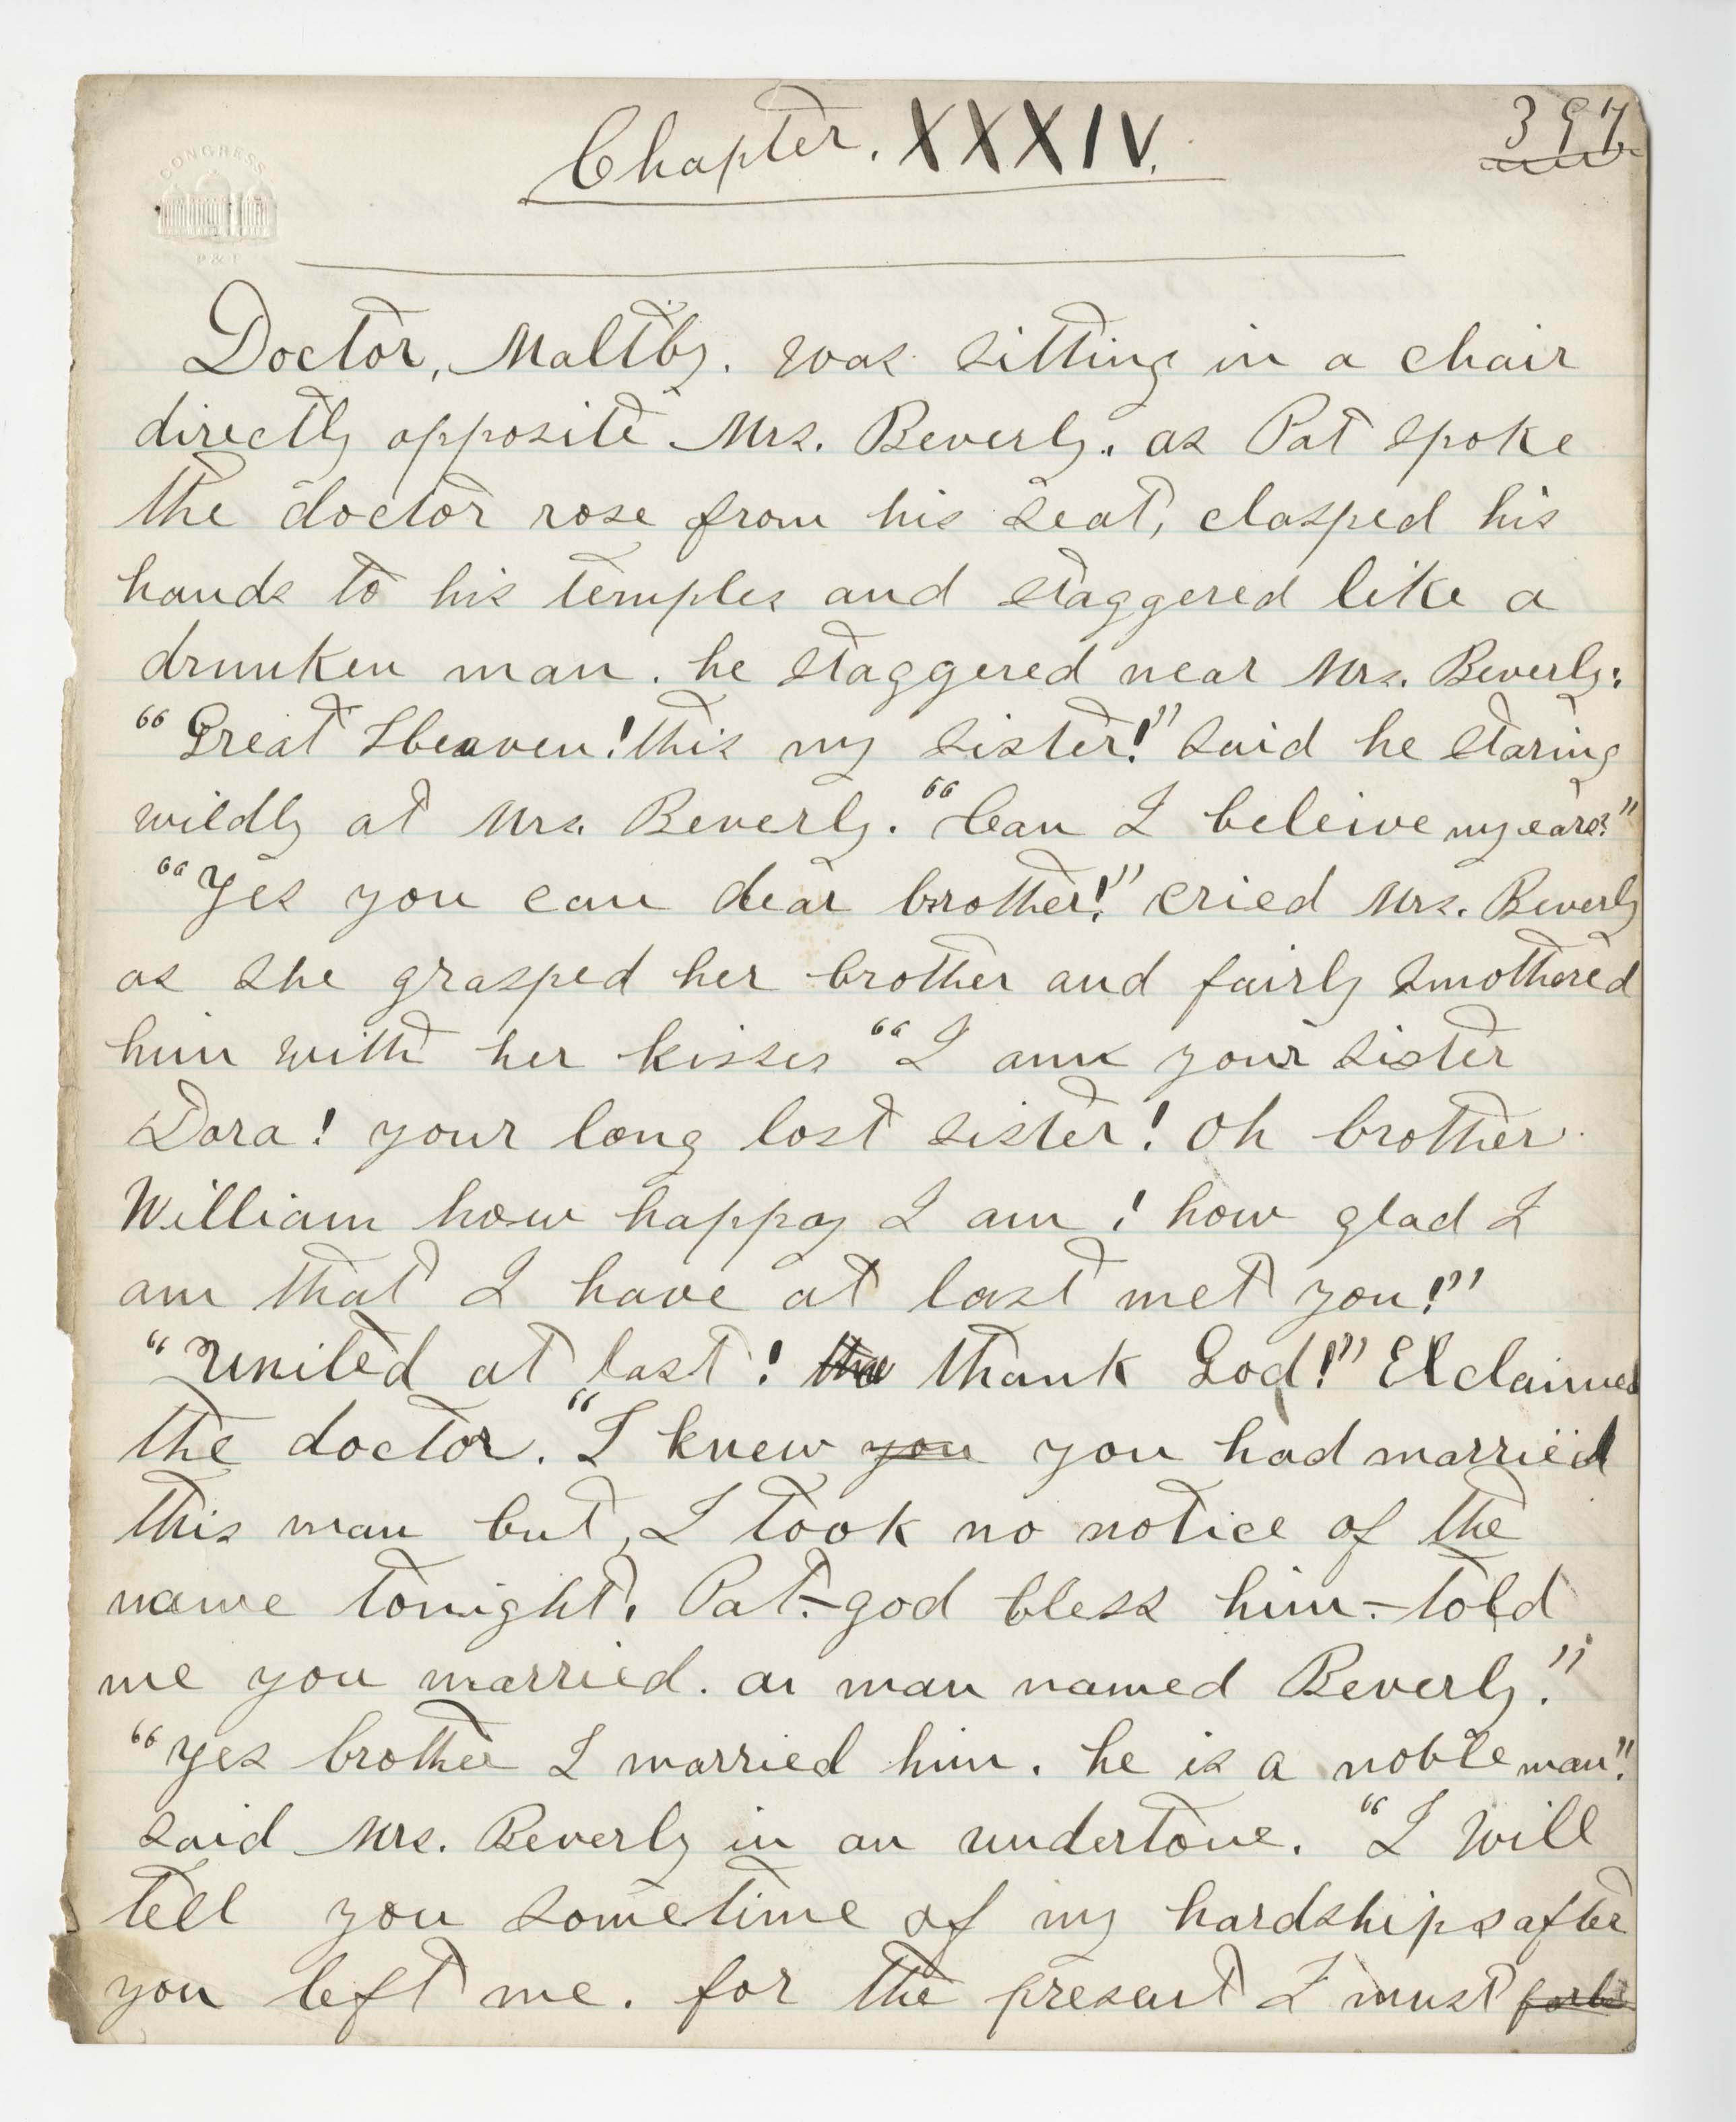 Chapter. XXXIV.
397
CONGRESS
P & P
Doctor, Maltby. was sitting in a chair
directly opposite Mrs. Beverly. as Pat spoke
the doctor rose from his seat, clasped his
hands to his temples and staggered like a
drunken man. he staggered near Mrs. Beverly:
“Great Heaven! this my sister!” said he staring
wildly at Mrs. Beverly. “Can I beleive my ears?”
“Yes you can dear brother!” cried Mrs. Beverly
as she grasped her brother and fairly smothered
him with her kisses “I am your sister
Dora! your long lost sister! Oh brother
William how happy I am! how glad I
am that I have at last met you!”
“United at last! the thank God!” Exclaimed
the doctor. “I knew you you had married
this man but, I took no notice of the
name tonight. Pat.-god bless him-told
me you married. a man named Beverly.”
“Yes brother I married him. he is a noble man”.
said Mrs. Beverly in an undertone. “I will
tell you sometime of my hardships after
you left me. for the present I must forbe